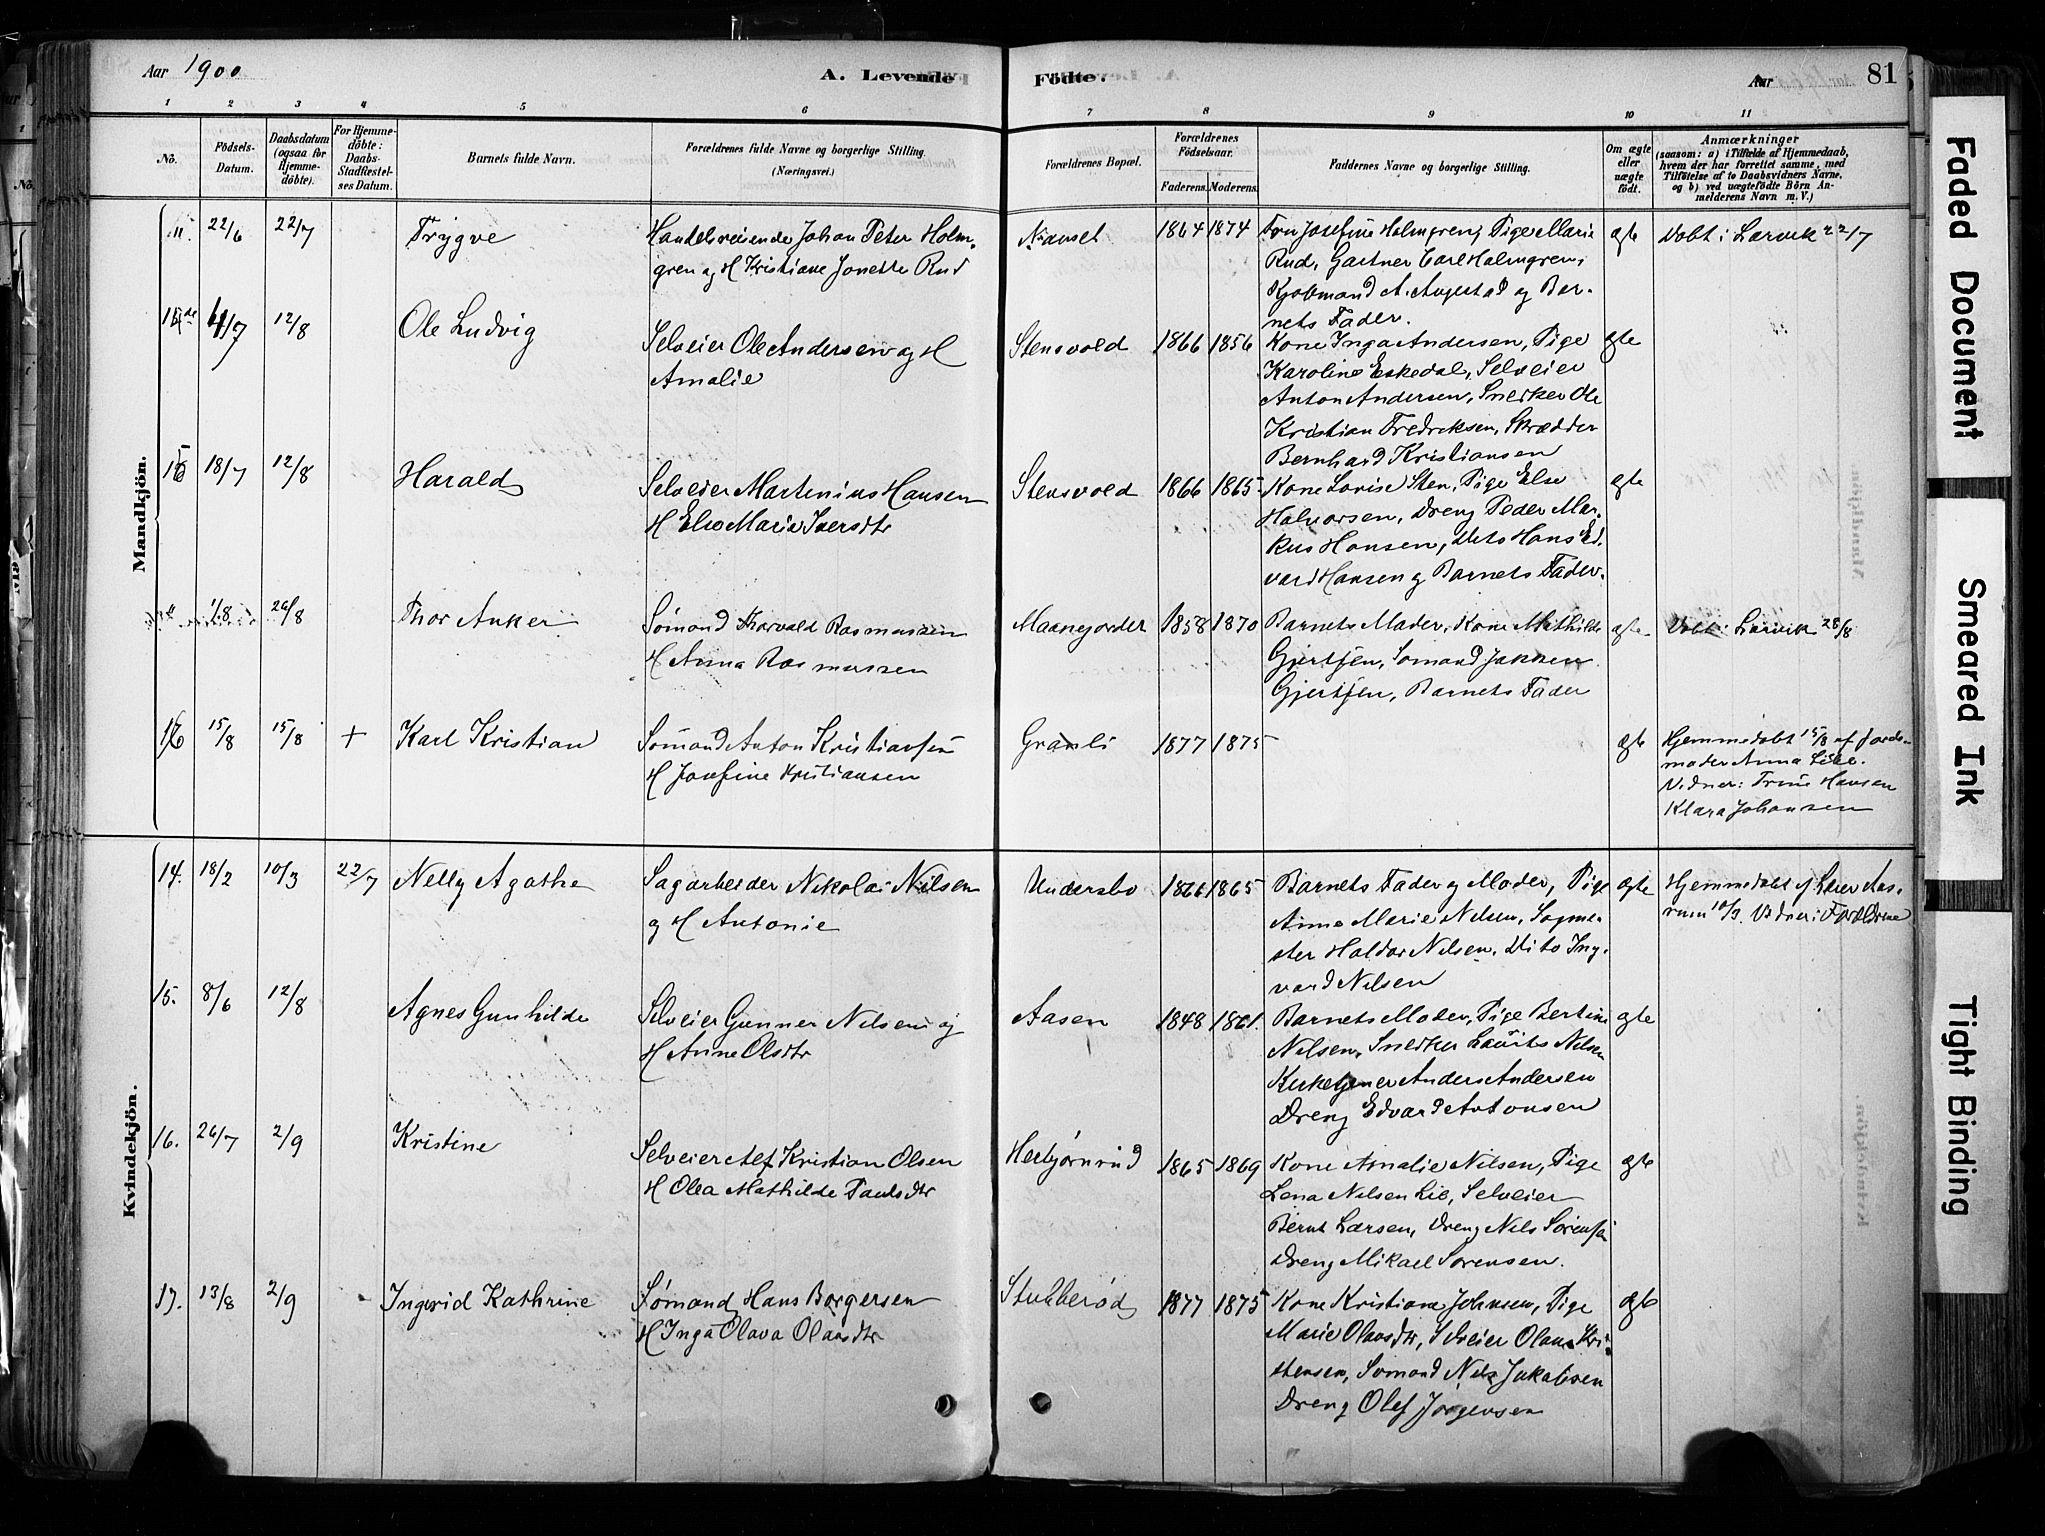 Aar 1900
A. Levende
Fødte.
Aar
81
1 2 3 4 5 6 7 8 9 10 11
No.
Födsels-Datum.
Daabsdatum (ogsaa for Hjemmedöbte).
For Hjemmedöbte: Daabs-Stadfæstelses Datum.
Barnets fulde Navn.
Forældrenes fulde Navne og borgerlige Stilling.
(Næringsvei.)
Forældrenes Bopæl.
Forældrenes Födselsaar.
Faderens. Moderens.
Faddernes Navne og borgerlige Stilling.
Om ægte eller uægte födt.
Anmærkninger
(saasom: a) i Tilfælde af Hjemmedaab,
hvem der har forrettet samme, med
Tilföielse af to Daabsvidners Navne,
og b) ved uægtefödte Börn An-
melderens Navn m. V.)
Mandkjön.
22/6 22/7 Trygve
Handelsreisende Johan Peter Holm-
gren og H Kristiane Jonette Rud
Nanset 1864 1874
Fru Josefine Holmgren, Pige Marie
Rud, Gartner Carl Holmgren,
Kjøbmand A. Augestad og Bar-
nets Fader.
ægte
Døbt i Larvik 22/7
4/7 12/8 Ole Ludvig
Selveier Ole Andersen og H
Amalie
Stensvold 1866 1856
Kone Inga Andersen, Pige
Karoline Eskedal, Selveier
Anton Andersen, Snedker Ole
Kristian Fredriksen, Skrædder
Bernhard Kristiansen
ægte
15 18/7 12/8 Harald
Selveier Martinius Hansen
H Else Marie Iversdtr
Stensvold 1866 1865
Kone Lovise Sten, Pige Else
Halvorsen, Dreng Peder Mar-
kus Hansen, dito Hans Ed-
vard Hansen og Barnets Fader.
ægte
1/8 26/8 Thor Anker
Sømand Thorvald Rasmussen
H Anna Rasmussen
Maanejordet 1858 1870
Barnets Moder, Kone Mathilde
Gjertsen, Sømand
Gjertsen, Barnets Fader
ægte
Døbt i Larvik 28/8
16 15/8 15/8 + Karl Kristian
Sømand Anton Kristiansen
H Josefine Kristiansen
Granli 1877 1875
ægte
Hjemmedøbt 15/8 af Jorde-
moder Anna Lie.
Vidner: Trine Hansen
Klara Johansen
Kvindekjön.
14. 18/2 10/3 22/7 Nelly Agathe
Sagarbeider Nikolai Nilsen
og H Antonie
Undersbo 1866 1865
Barnets Fader og Moder, Pige
Anne Marie Nilsen, Sagme-
ster Haldor Nilsen, Dito Ing-
vard Nilsen
ægte
Hjemmedøbt af Lærer Aas-
rum 10/3. Vidner: Forældrene
15. 8/6 12/8 Agnes Gunhilde
Selveier Gunner Nilsen og
H Anne Olsdtr
Aasen 1848 1861.
Barnets Moder, Pige Bertine
Nilsen, Snedker Laurits Nilsen
Kirketjener Anders Andersen
Dreng Edvard Antonsen
ægte
16. 26/7 2/9 Kristine
Selveier Alf Kristian Olsen
H Olea Mathilde Paulsdtr
Herbjørnrød 1865 1869
Kone Amalie Nilsen, Pige
Lena Nilsen Lie, Selveier
Bernt Larsen, Dreng Nils Sørensen
Dreng Mikael Sørensen.
ægte
17. 13/8 2/9 Ingerid Kathrine
Sømand Hans Borgersen
H Inga Olava Olausdtr
Stubberød 1877 1875
Kone Kristiane Johnsen, Pige
Marie Olausdtr, Selveier Olaus Kri-
stensen, Sømand Nils Jakobsen
Dreng Olef Jørgensen
ægte
Faded Document
Smeared Ink
Tight Binding